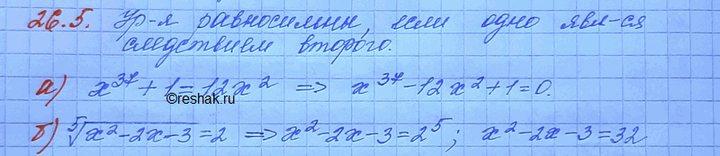 26.5. Ур-я равносильны, если одно явл-ся
следствием второго.
а) x³⁷ + 1 = 12x² ⇒ x³⁷ - 12x² + 1 = 0.
©reshak.ru
б) ⁵√(x² - 2x - 3) = 2 ⇒ x² - 2x - 3 = 2⁵; x² - 2x - 3 = 32